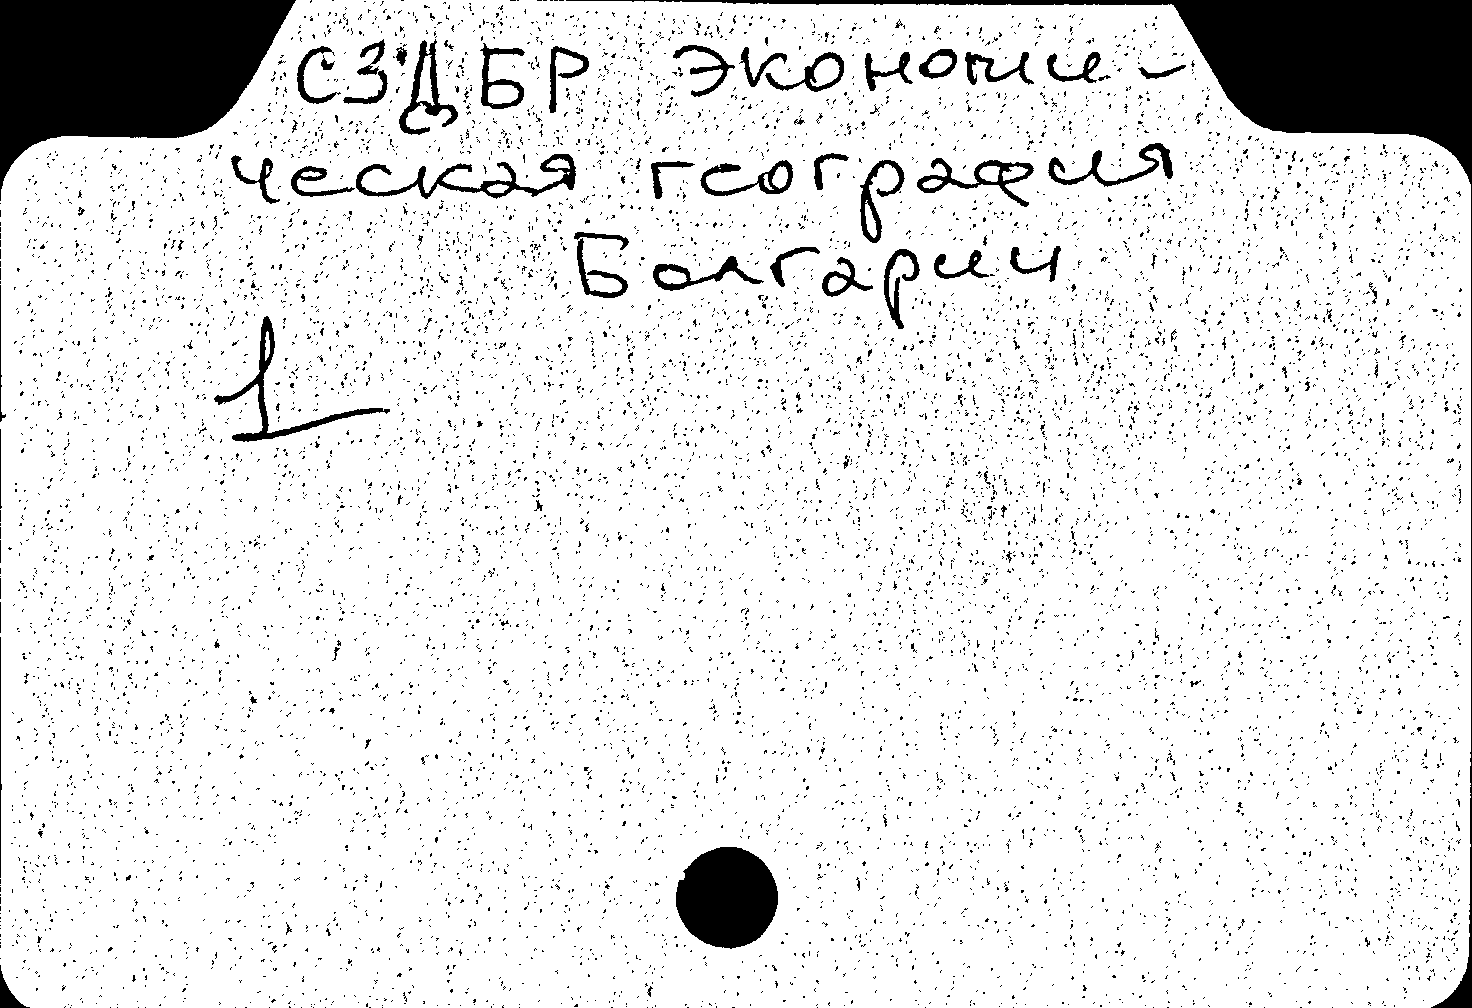 СЗД БР Экономи-
ческая география
Болгарии
1